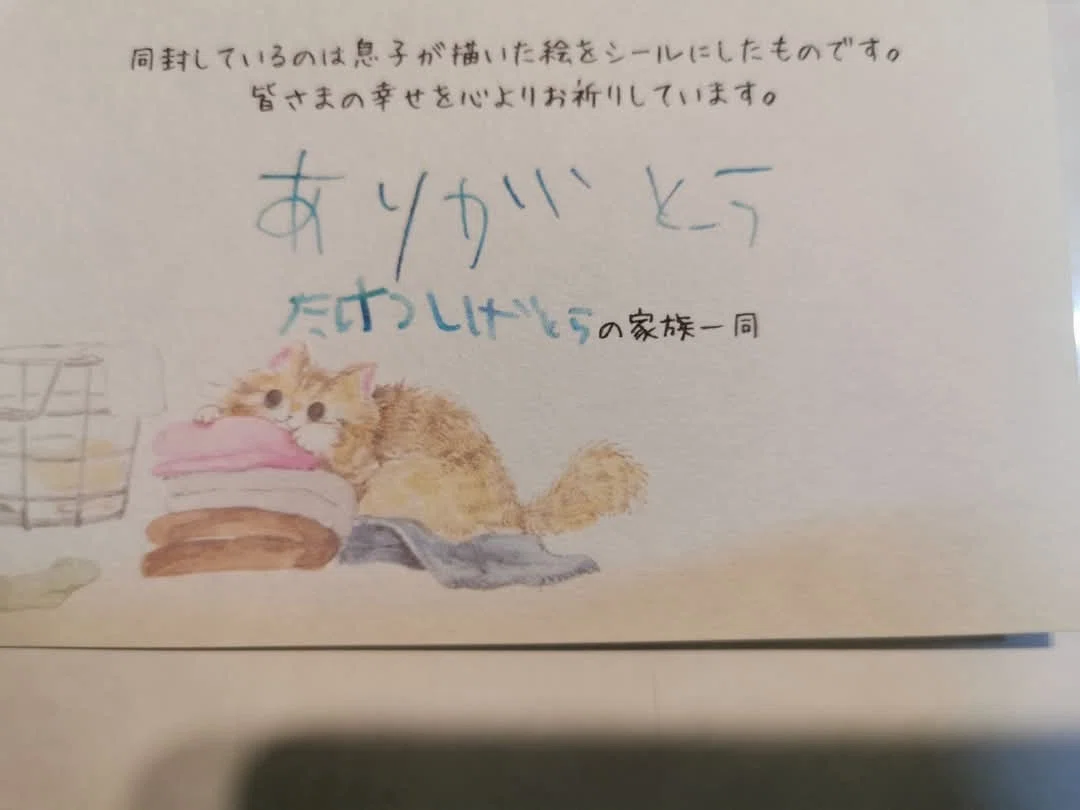 同封しているのは息子が描いた絵をシールにしたものです。
皆さまの幸せを心よりお祈りしています。
ありがとう
たけつしげとらの家族一同